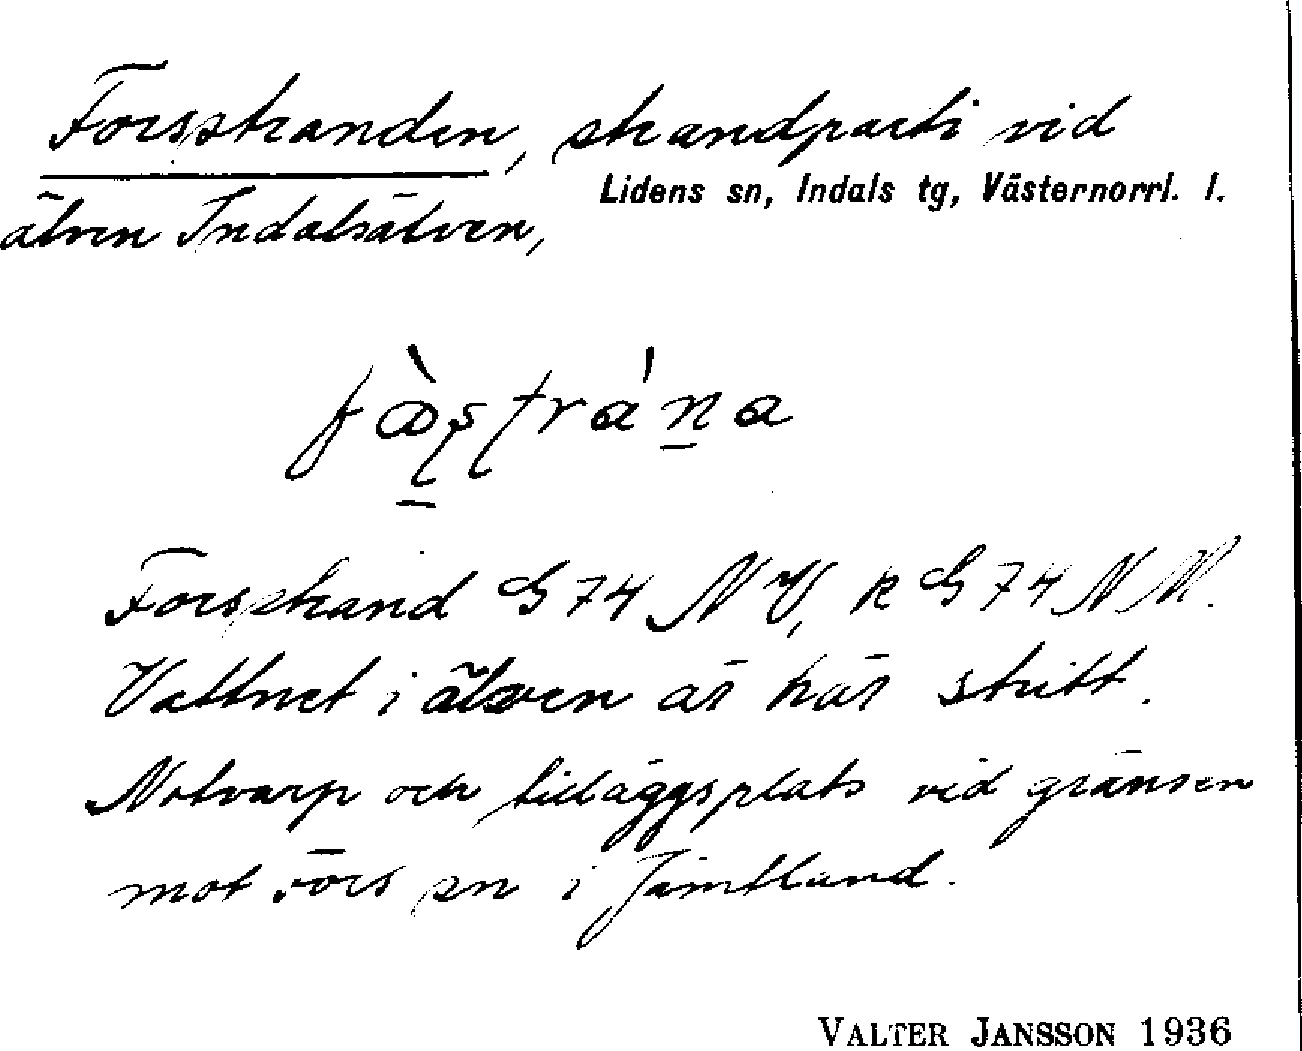 Forsstranden, strandparti vid
Lidens sn, Indals tg, Västernorrl. l.
älven Indalsälven,
Forsstrand G 74 NV, k G 74 N
Vattnet i älven är här stritt.
Notvarp och tilläggsplats vid gränsen
mot Fors sn i Jämtland.
VALTER JANSSON 1936